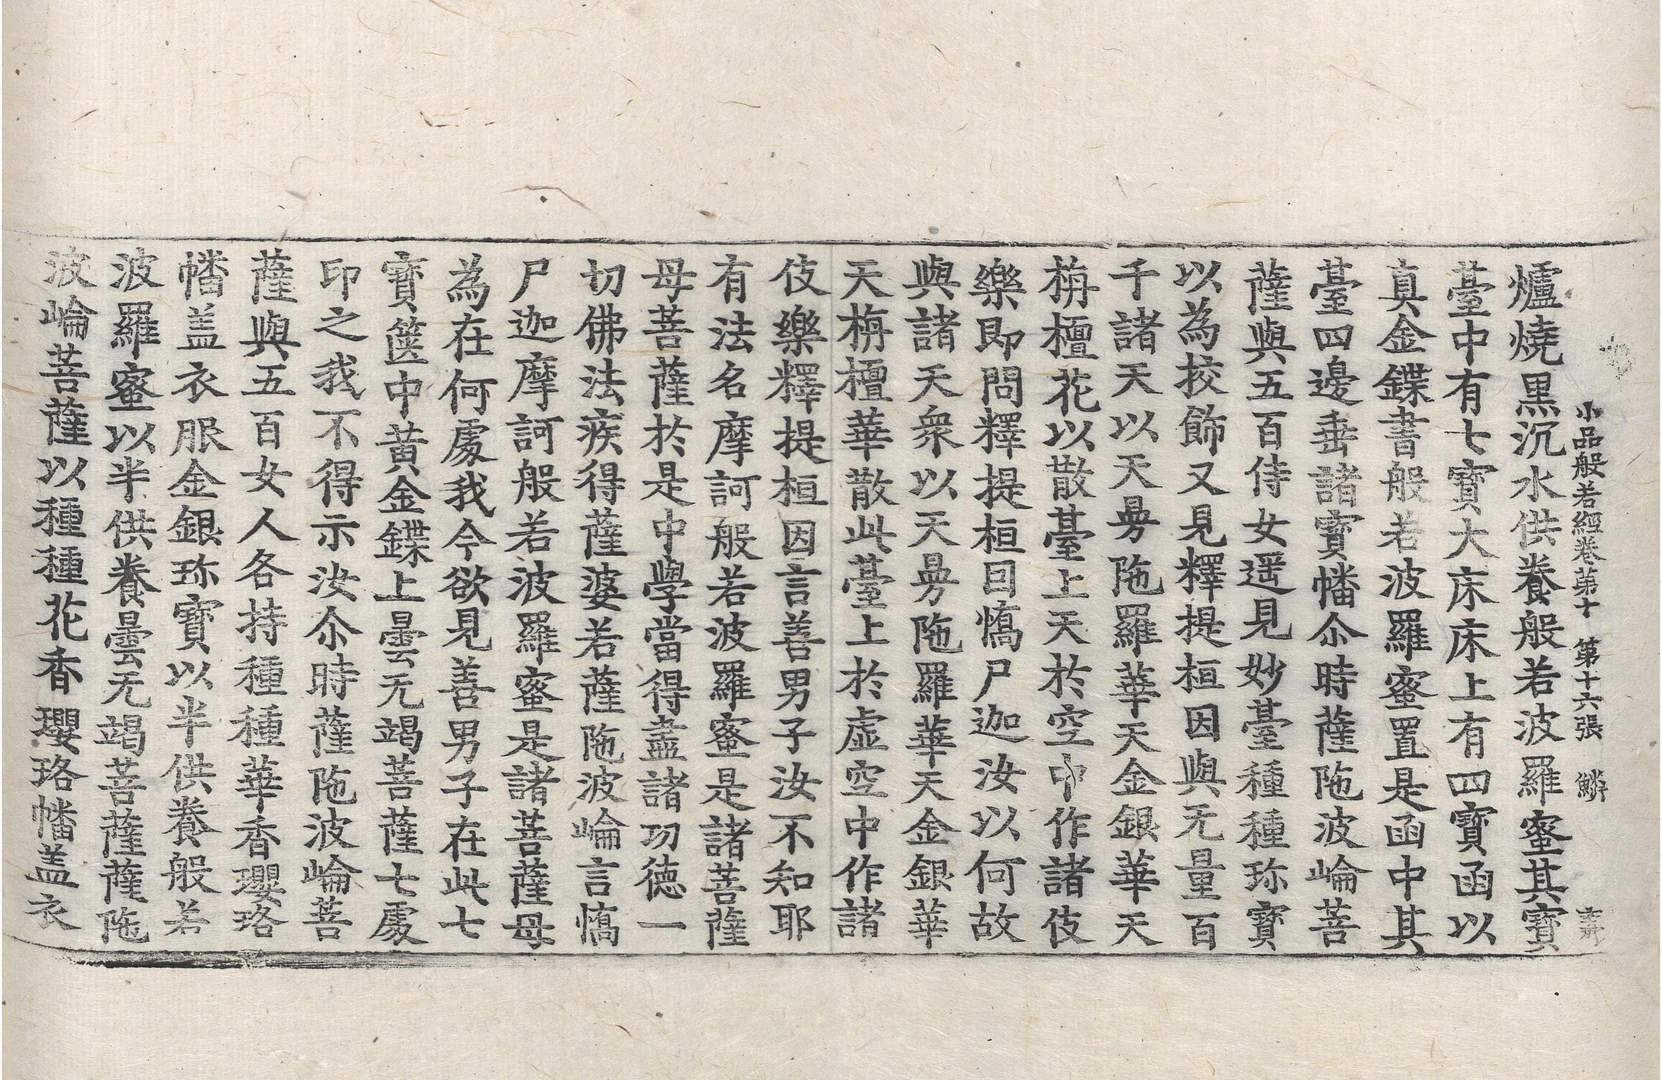 小品般若經卷第十 第十六張 鱗
爐燒黑沉水供養般若波羅蜜其寶
臺中有七寶大床床上有四寶函以
真金鍱書般若波羅蜜置是函中其
臺四邊垂諸寶幡尒時薩陁波崘菩
薩與五百侍女遥見妙臺種種珎寶
以為挍飾又見釋提桓因與无量百
千諸天以天曼陁羅華天金銀華天
栴檀花以散臺上天於空中作諸伎
樂即問釋提桓因憍尸迦汝以何故
與諸天衆以天曼陁羅華天金銀華
天栴檀華散此臺上於虛空中作諸
伎樂釋提桓因言善男子汝不知耶
有法名摩訶般若波羅蜜是諸菩薩
母菩薩於是中學當得盡諸功德一
切佛法疾得薩婆若薩陁波崘言憍
尸迦摩訶般若波羅蜜是諸菩薩母
為在何處我今欲見善男子在此七
寶篋中黃金鍱上曇无竭菩薩七處
印之我不得示汝尒時薩陁波崘菩
薩與五百女人各持種種華香瓔珞
幡盖衣服金銀珎寶以半供養般若
波羅蜜以半供養曇无竭菩薩薩陁
波崘菩薩以種種花香瓔珞幡盖衣